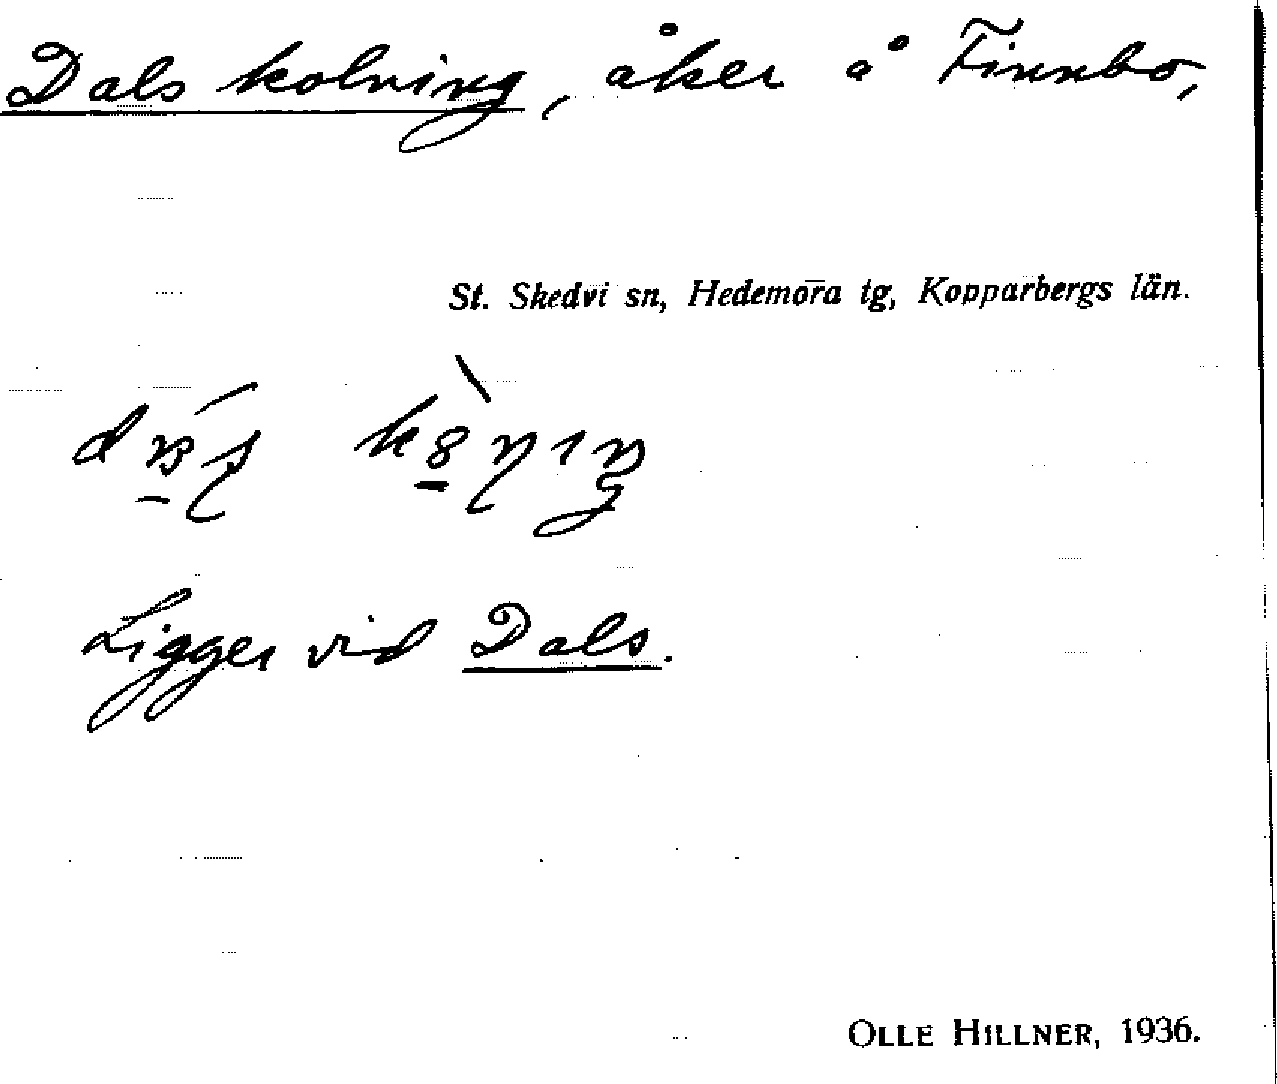 Dals kolning, åker å Finnbo,
St. Skedvi sn, Hedemora tg, Kopparbergs län.
Ligger vid Dals.
OLLE HILLNER, 1936.